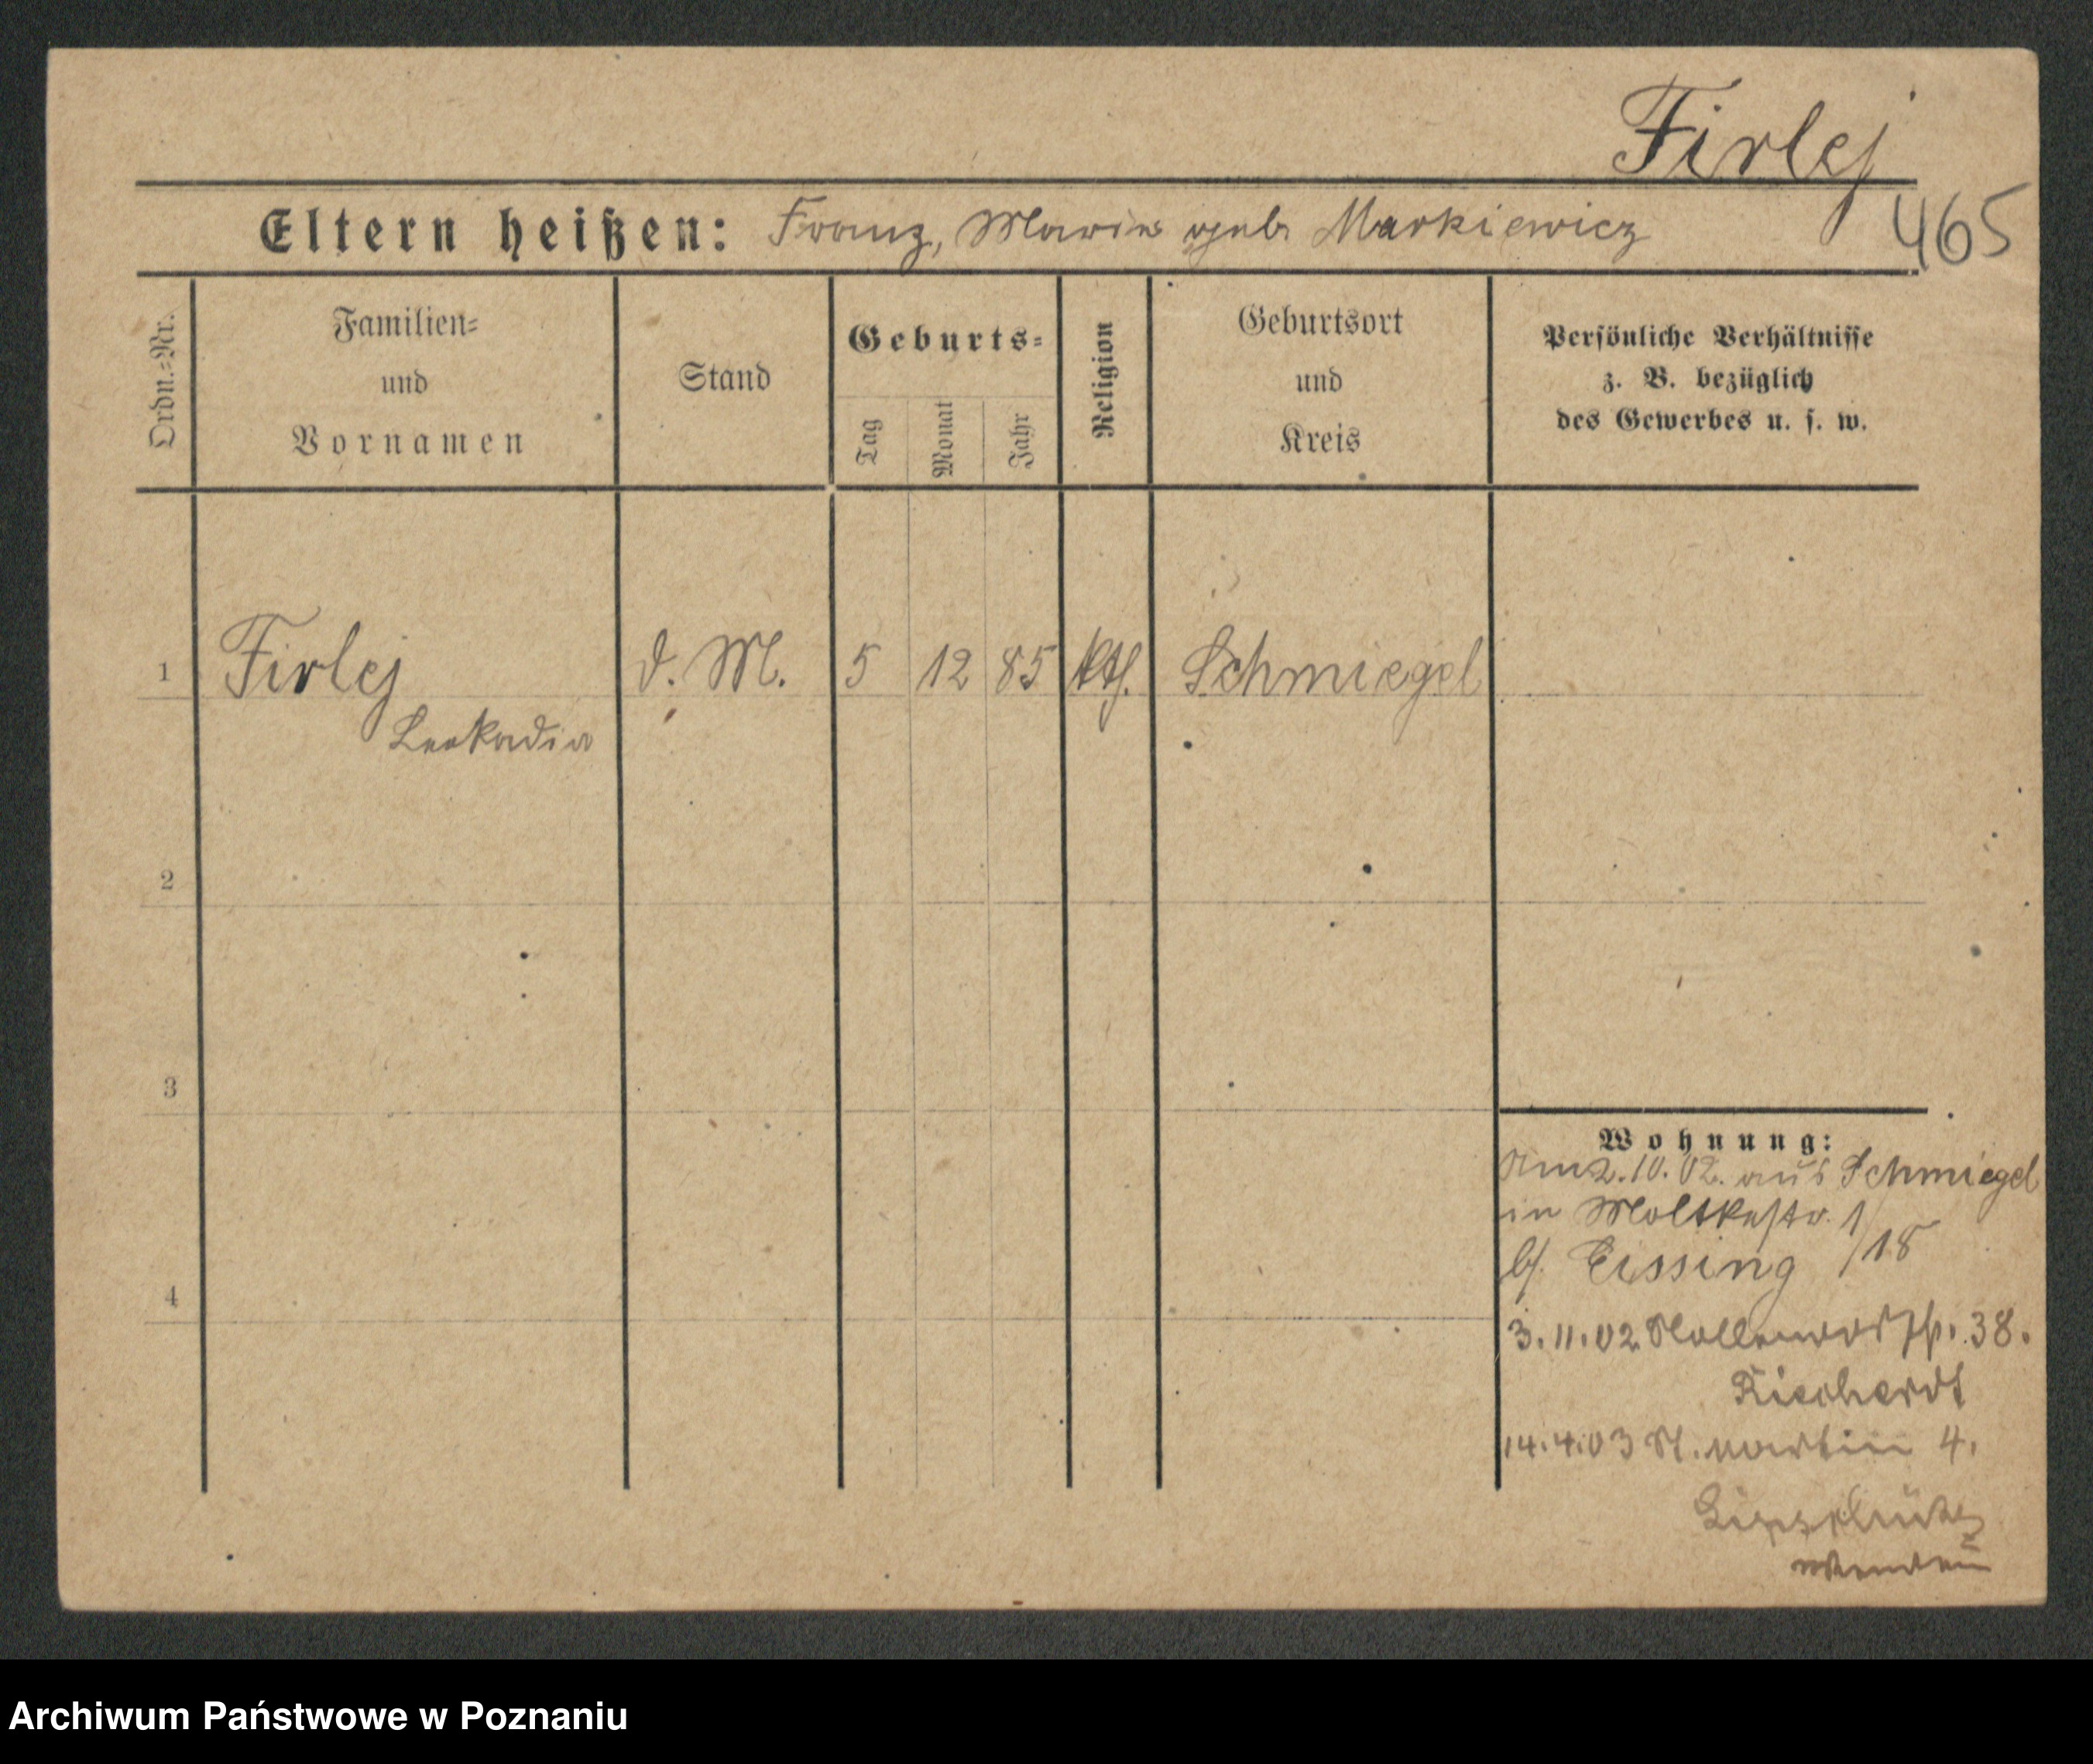 Firlej
465
Eltern heißen: Franz, Maria geb. Markiewicz
Ordn.-Nr.
Familien-
und
Vornamen
Stand
Geburts-
Tag
Monat
Jahr
Religion
Geburtsort
und
Kreis
Persönliche Verhältnisse
z. B. bezüglich
des Gewerbes u. s. w.
1 Firlej d. M. 5 12 85 kth. Schmiegel
Leokadia
2
3
4
Wohnung:
Am 2.10.02. aus Schmiegel
in Moltkestr. 1/18
b/. Eissing
3.11.02 38.
14.4.03 St. Martin 4.
wenden
Archiwum Państwowe w Poznaniu